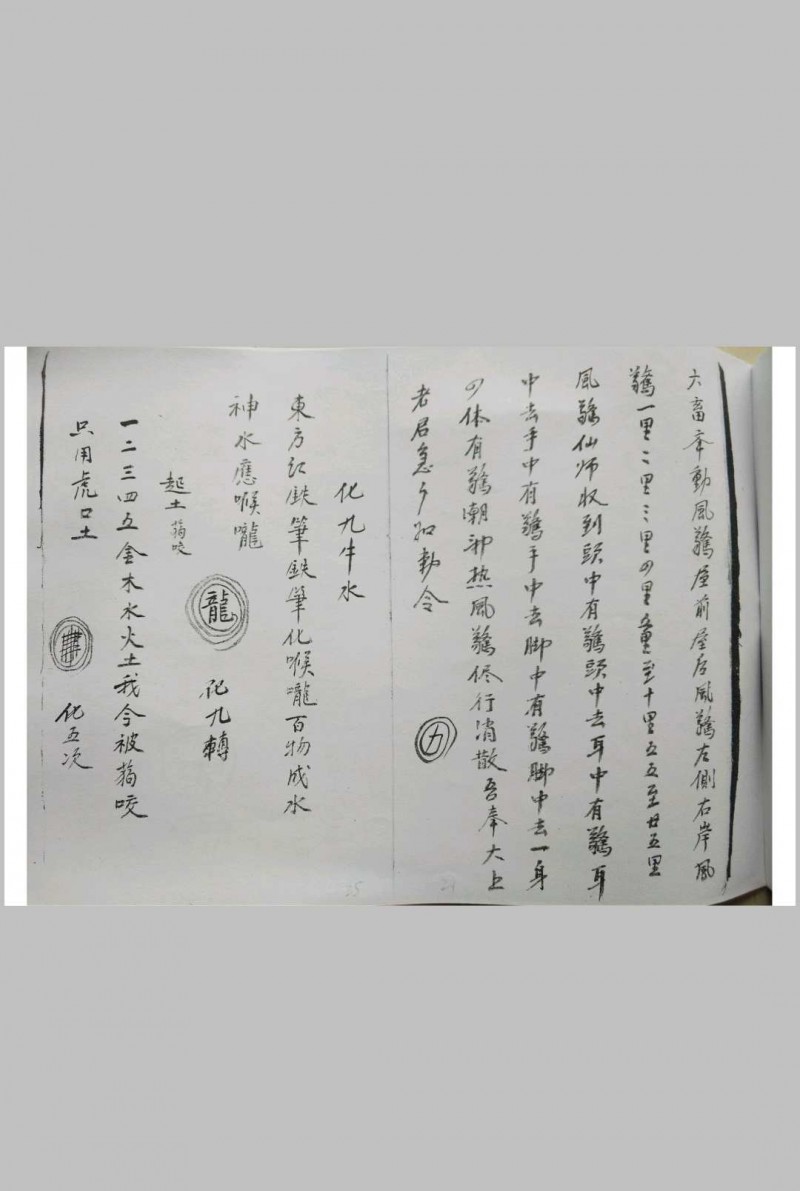 六畜牽動風驚屋前屋后風驚左側右岸風
驚一里二里三里四里五里至十里五五至廿五里
風驚仙师收到頭中有驚頭中去耳中有驚耳
中去手中有驚手中去脚中有驚脚中去一身
四体有驚潮邪热風驚侭行消散吾奉大上
老君急々如勅令
九
化九牛水
東方红鉄筆鉄筆化喉嚨百物成水
神水應喉嚨
龍
化九轉
起土
咬
一二三四五金木水火土我今被咬
只用虎口土
化五次
25